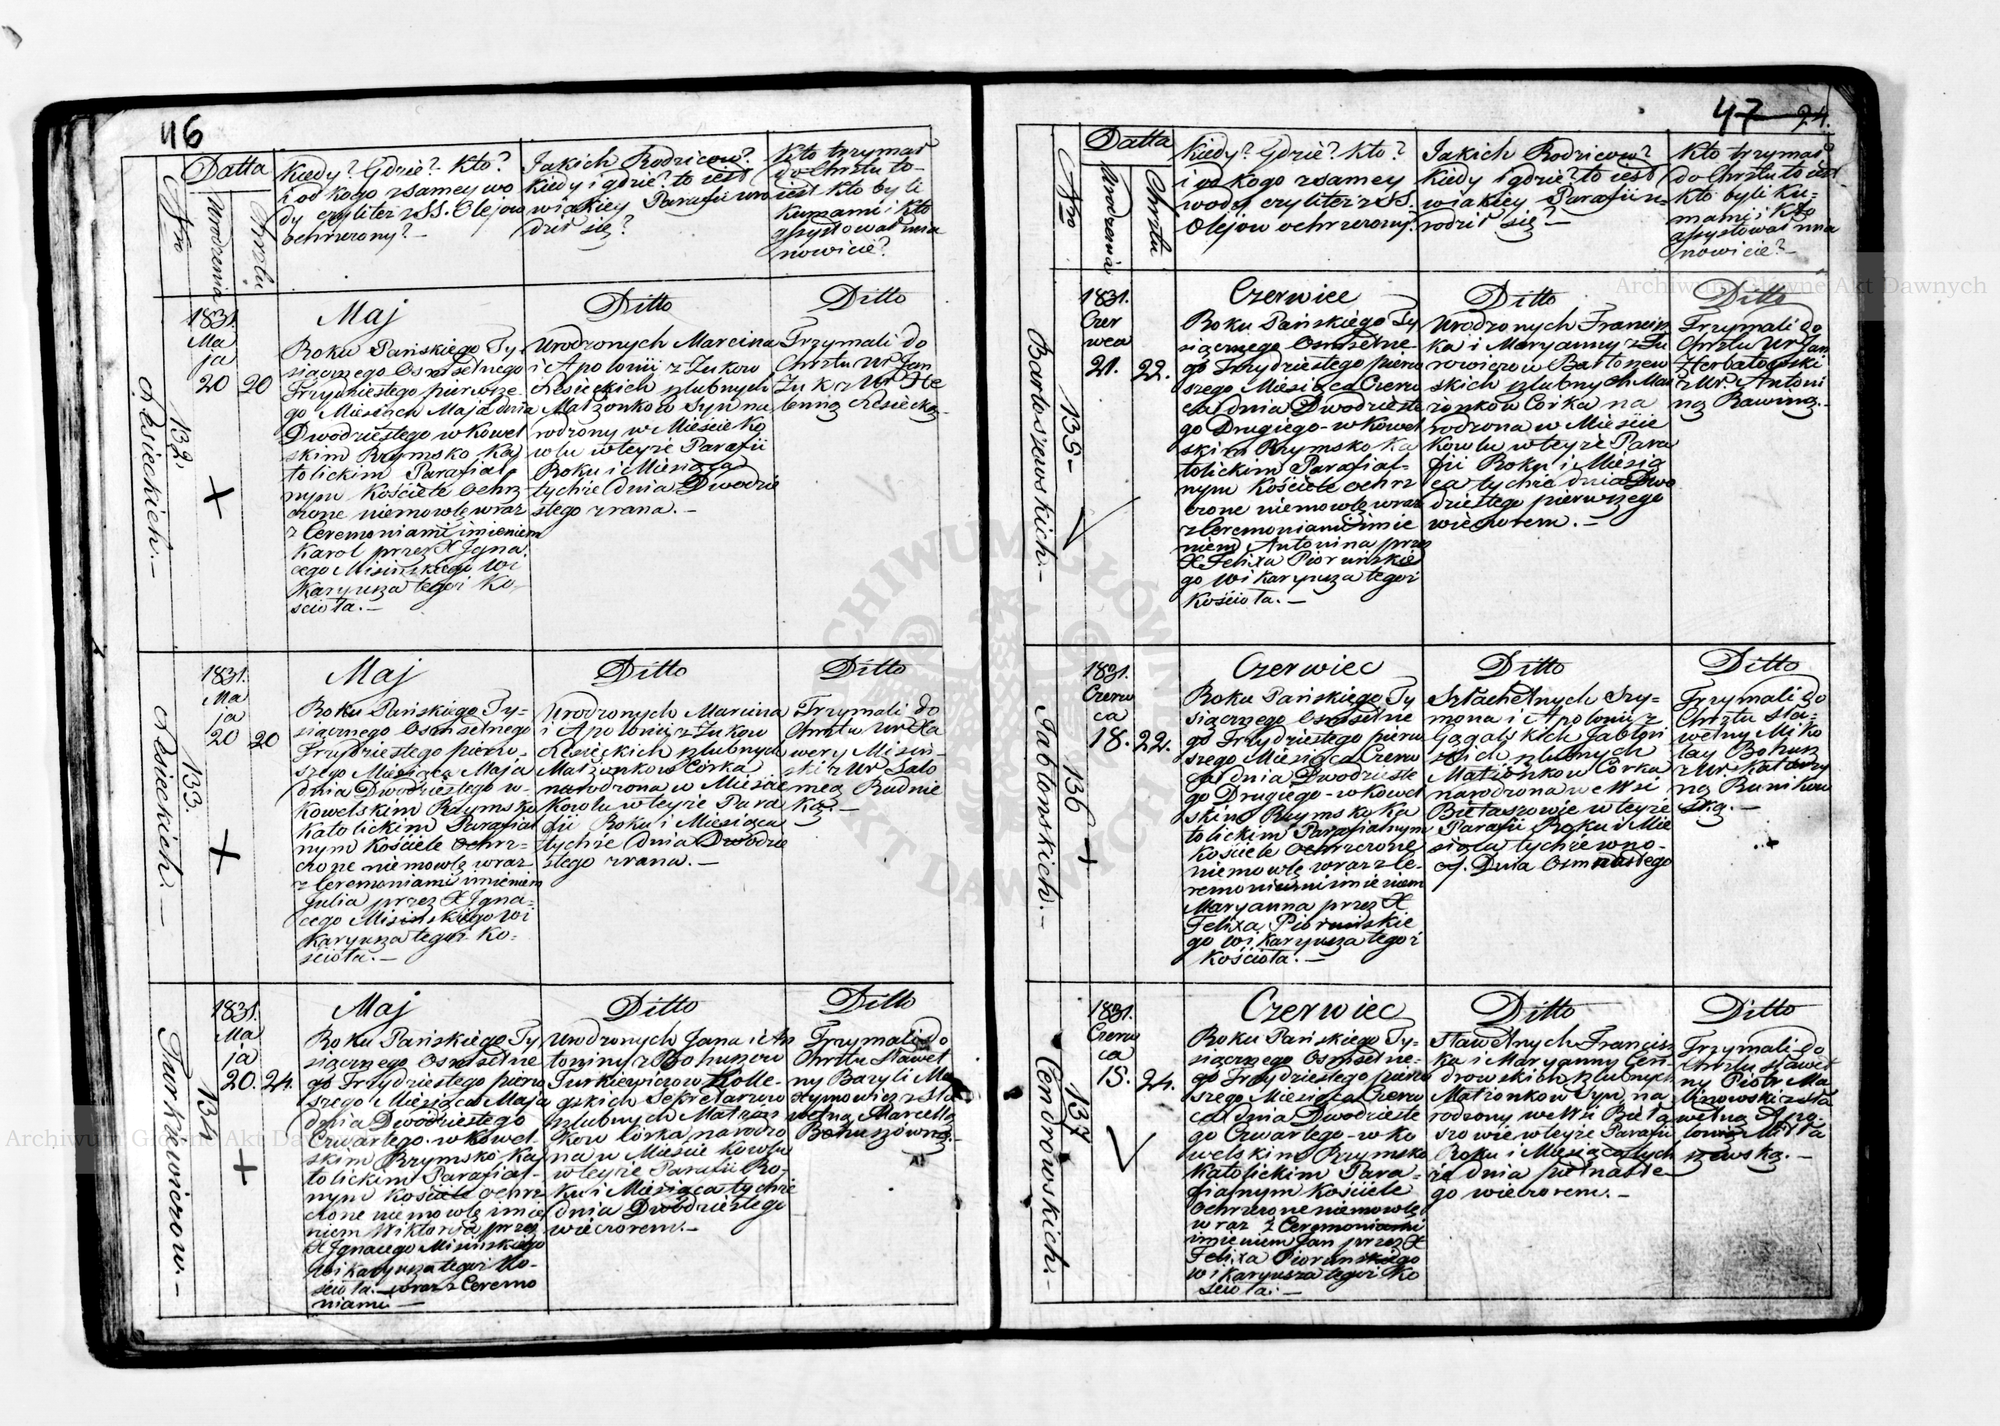 46
Datta
Nro
Urodzenia
Chrztu
Kiedy? Gdzie? Kto?
i od kogo z samey wo
dy czyli też z SS. Olejow
ochrzczony? —
Jakich Rodzicow?
Kiedy i gdzie? to iest
w iakiey Parafii uro
dził się?
Kto trzymał
do Chrztu to
iest kto byli
Kumami i kto
assystował mia
nowicie?
132.
Lesieckich. —
1831.
Ma
ja
20
20
Maj
Roku Pańskiego Ty-
siącznego Osmsetnego
Trzydziestego pierwsze
go Miesiąca Maja dnia
Dwodziestego w Kowel
skim Rzymsko Ka
tolickim Parafial
nym Kościele Ochrz
czone niemowlę wraz
z Ceremoniami imieniem
Karol przez X Igna.
cego Misińskiego Wi
Karyusza tegoż Ko-
ścioła. —
Ditto
Urodzonych Marcina
i Apolonii z Zukow
Lesieckich szlubnych
Małzonkow Syn na
rodzony w Mieście Ko
wlu w teyże Parafii
Roku i Miesiąca
tychże dnia Dwodzie
stego zrana. —
Ditto
Trzymali do
Chrztu Ur Jan
Zuk z Ur He
leną Lesiecką.
133.
Lesieckich. —
1831.
Ma
ja
20
20
Maj
Roku Pańskiego Ty-
siącznego Osmsetnego
Trzydziestego pierw-
szego Miesiąca Maja
dnia Dwodziestego w-
Kowelskim Rzymsko
Katolickim Parafial
nym Kościele Ochrz-
czone niemowlę wraz
z Ceremoniami imieniem
Julia przez X Igna-
cego Misińskiego Wi
Karyusza tegoż Ko-
ścioła. —
Ditto
Urodzonych Marcina
i Apolonii z Zukow
Lesieckich szlubnych
Małzonkow Córka
narodzona w Mieście
Kowlu w teyże Para
fii Roku i Miesiąca
tychże dnia Dwodzie
stego zrana. —
Ditto
Trzymali do
Chrztu Ur Xa
wery Misiń-
ski z Ur Salo
meą Rudnic
ką. —
134
Turkiewiczow. —
1831.
Ma
ja
20.
24.
Maj
Roku Pańskiego Ty
siącznego Osmsetne
go Trzydziestego pierw
szego Miesiąca Maja
dnia Dwodziestego
Czwartego w Kowel-
skim Rzymsko Ka-
tolickim Parafial-
nym Kościele ochrz
czone niemowlę imie
niem Wiktorya przez
X Ignacego Misińskiego
Wikaryusza tegoż Ko-
ścioła. wraz z Ceremo
niami —
Ditto
Urodzonych Jana i An
toniny z Bohuszow
Turkiewiczow Kolle-
gskich Sekretarzow
szlubnych Małzon
kow Córka narodzo
na w Mieście Kowlu
w teyże Parafii Ro-
ku i Miesiąca tychże
dnia Dwodziestego
wieczorem. —
Ditto
Trzymali do
Chrztu Sławet
ny Bazyli Ma
xymowicz z Sła
wetną Marcellą
Bohuszówną. —
47
24.
Datta
Nro
Urodzenia
Chrztu
Kiedy? Gdzie? Kto?
i od kogo z samey
wody czyli też z SS.
Olejow ochrzczony?
Jakich Rodzicow?
Kiedy i gdzie? to iest
w iakiey Parafii u-
rodził się? —
Kto trzymał
do Chrztu to iest
kto byli Ku-
mami i Kto
assystował mia
nowicie? —
135 —
Bartoszewskich. —
1831.
Czer
wca
21.
22.
Czerwiec
Roku Pańskiego Ty
siącznego Osmsetne-
go Trzydziestego pierw
szego Miesiąca Czerw
ca dnia Dwodzieste
go Drugiego w Kowel
skim Rzymsko Ka
tolickim Parafial-
nym Kościele ochrz
czone niemowlę wraz
z Ceremoniami imie
niem Antonina przez
X. Felixa Piorunskie
go Wikaryusza tegoż
Kościoła. —
Ditto
Urodzonych Francisz
ka i Maryanny z Tu
rowiczow Bartoszew
skich szlubnych Mał
żonkow Corka na
rodzona w Mieście
Kowlu w teyże Para
fii Roku i Miesią
ca tychże dnia Dwo
dziestego pierwszego
wieczorem. —
Ditto
Trzymali do
Chrztu Ur Jan
Zterbatowski
z Ur. Antoni
ną Rawiną. —
136
Jabłonskich. —
1831.
Czerw
ca
18.
22.
Czerwiec
Roku Pańskiego Ty
siącznego Osmsetne
go Trzydziestego pierw
szego Miesiąca Czerw
ca dnia Dwodzieste
go Drugiego w Kowel
skim Rzymsko Ka
tolickim Parafialnym
Kościele Ochrzczone
niemowlę wraz z Ce-
remoniami imieniem
Maryanna przez X
Felixa Piorunskie
go Wikaryusza tegoż
Kościoła. —
Ditto
Szlachetnych Szy-
mona i Apolonii z
Gągalskich Jabłoń
skich szlubnych
Małżonkow Córka
narodzona we Wsi
Biełaszowie w teyże
Parafii Roku i Mie
siąca tychże w no-
cy. Dnia Osmnastego
Ditto
Trzymali do
Chrztu Sła-
wetny Miko
łay Bohusz
z Ur. Katarzy
ną Runikow
ską. —
137
Cendrowskich. —
1831.
Czerw
ca
15.
24.
Czerwiec
Roku Pańskiego Ty-
siącznego Osmsetne-
go Trzydziestego pierw
szego Miesiąca Czerw
ca dnia Dwodzieste
go Czwartego w Ko
welskim Rzymsko
Katolickim Para-
fialnym Kościele
Ochrzczone niemowlę
wraz z Ceremoniami
imieniem Jan przez X
Felixa Piorunskiego
Wikaryusza tegoż Ko
ścioła. —
Ditto
Sławetnych Francisz
ka i Maryanny Cen-
drowskich szlubnych
Małżonkow Syn na
rodzony we Wsi Bieła
szowie w teyże Parafii
Roku i Miesiąca tych
że dnia piętnaste
go wieczorem. —
Ditto
Trzymali do
Chrztu Sławet
ny Piotr Ma
linowski z Sła
wetną Apo
lonią
szewską. —
Archiwum Główne Akt Dawnych
Archiwum Główne Akt Dawnych
ARCHIWUM GŁÓWNE AKT DAWNYCH